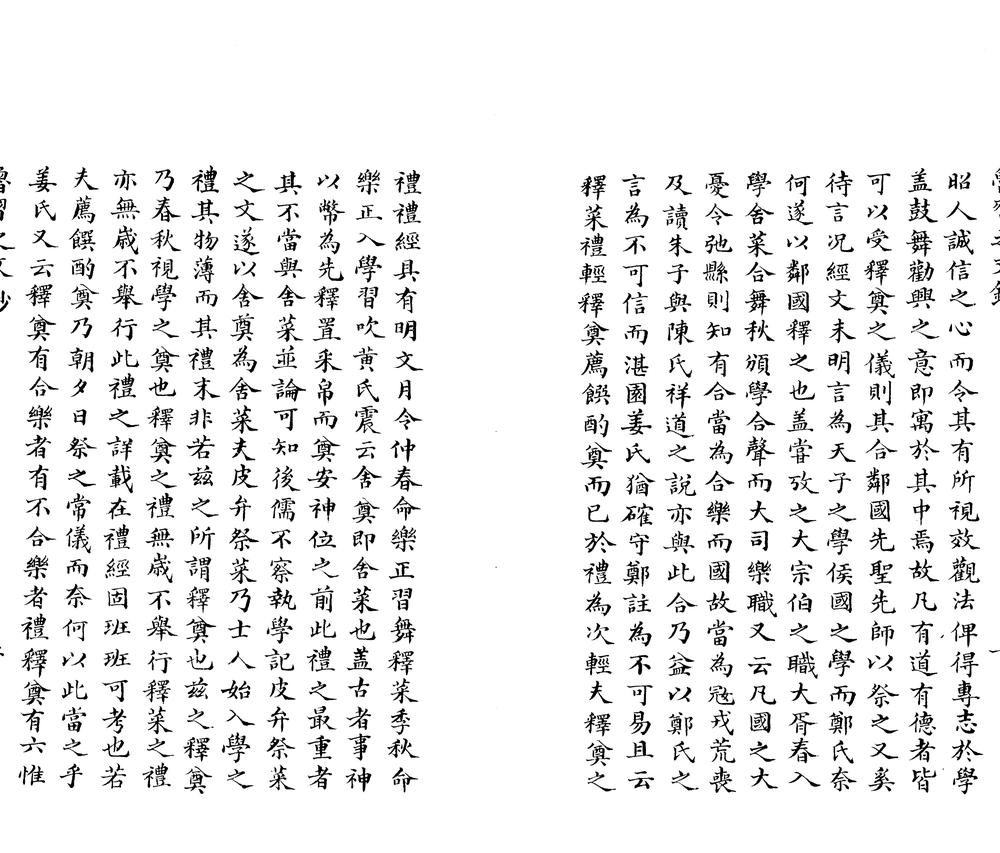 昭人誠信之心而令其有所視效觀法俾得專志於學
盖鼓舞勸興之意即寓於其中焉故凡有道有德者皆
可以受釋奠之儀則其合鄰國先聖先師以祭之又奚
待言况經文未明言為天子之學侯國之學而鄭氏奈
何遂以鄰國釋之也盖甞攷之大宗伯之職大胥春入
學舍菜合舞秋頒學合聲而大司樂職又云凡國之大
憂令弛縣則知有合當為合樂而國故當為冦戎荒喪
及讀朱子與陳氏祥道之說亦與此合乃益以鄭氏之
言為不可信而湛園姜氏猶確守鄭註為不可易且云
釋菜禮輕釋奠薦饌酌奠而已於禮為次輕夫釋奠之
禮禮經具有明文月令仲春命樂正習舞釋菜季秋命
樂正入學習吹黃氏震云舍奠即舍菜也盖古者事神
以幣為先釋置采帛而奠安神位之前此禮之最重者
其不當與舍菜並論可知後儒不察執學記皮弁祭菜
之文遂以舍奠為舍菜夫皮弁祭菜乃士人始入學之
禮其物薄而其禮末非若兹之所謂釋奠也兹之釋奠
乃春秋視學之奠也釋奠之禮無歲不舉行釋菜之禮
亦無歲不舉行此禮之詳載在禮經固班班可考也若
夫薦饌酌奠乃朝夕日祭之常儀而奈何以此當之乎
姜氏又云釋奠有合樂者有不合樂者禮釋奠有六惟